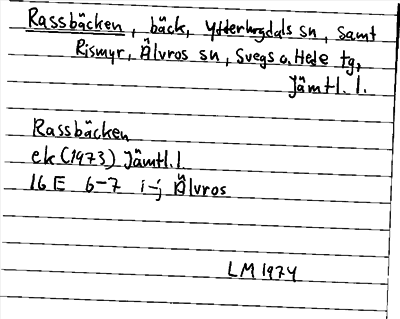 Rassbäcken, bäck, Ytterhogdals sn, samt
Rismyr, Älvros sn, Svegs o. Hede tg,
Jämtl. l.
Rassbäcken
ek (1973) Jämtl. l
16 E 6-7 i-j Älvros
LM 1974